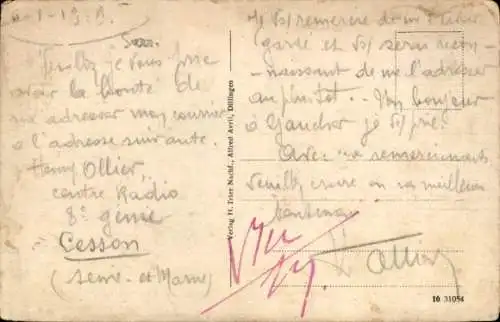 Veuillez je vous prie
avoir la bonté de
m'adresser mon courrier
à l'adresse suivante.
Henry Ollier
centre Radio
8e génie
Cesson
(Seine et Marne)
Verlag H. Trier Nachf., Alfred Avril, Dillingen
Je vs remercie de m'
gardé et vs serai recon-
naissant de me l'adresser
au plus tôt.. bonjour
à Gaucher je vs prie.
Avec remerciements
Veuillez croire en ma meilleure
16 31054